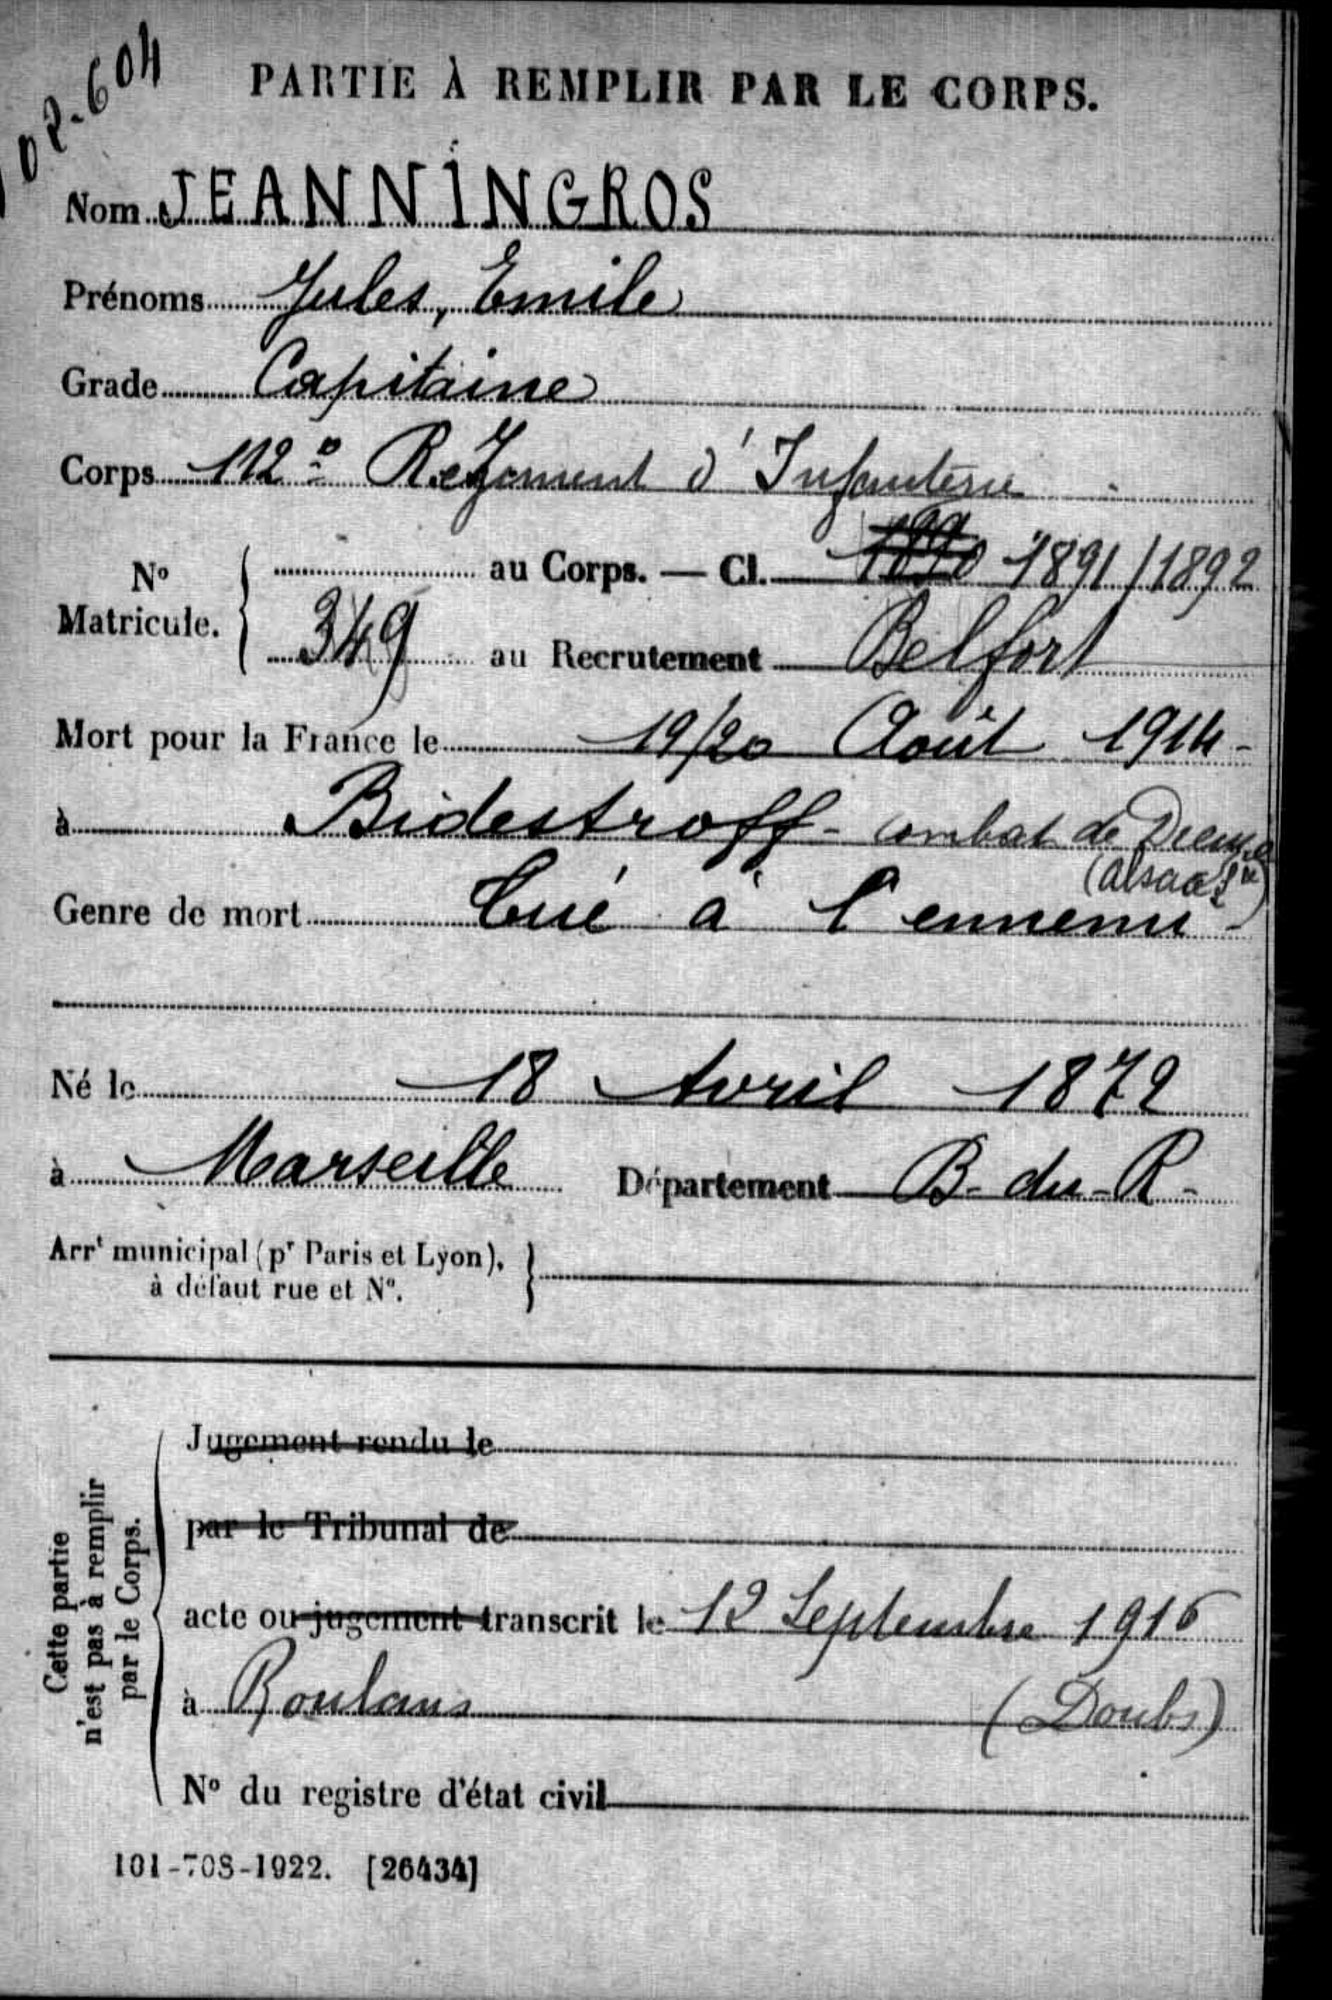 02-604
PARTIE À REMPLIR PAR LE CORPS.
Nom JEANNINGROS
Prénoms Jules, Emile
Grade Capitaine
Corps 112e Régiment d'Infanterie
No Matricule.
au Corps. — Cl. 1891/1892
349 au Recrutement Belfort
Mort pour la France le 19/20 Août 1914 -
à Bidestroff - combat de Dieuze
(Alsace Lne)
Genre de mort Tué à l'ennemi -
Né le 18 Avril 1872
à Marseille Département B-du-R-
Arrt municipal (pr Paris et Lyon),
à défaut rue et No.
Cette partie
n'est pas à remplir
par le Corps.
Jugement rendu le
par le Tribunal de
acte ou jugement transcrit le 12 Septembre 1916
à Roulans (Doubs)
No du registre d'état civil
101-708-1922. [26434]